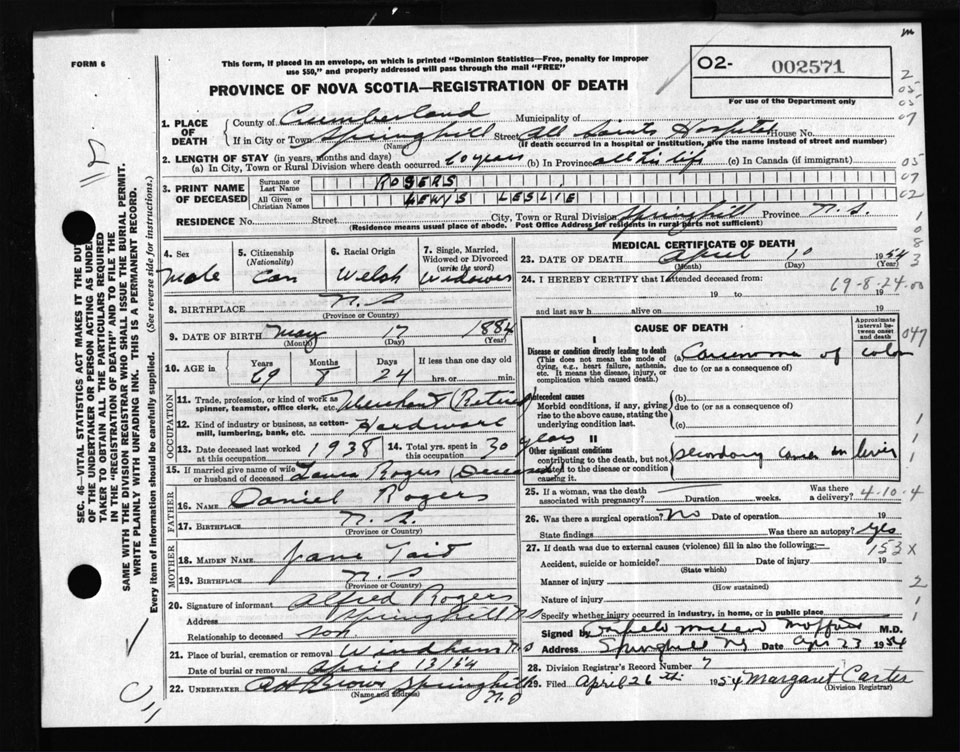 FORM 6
This form, if placed in an envelope, on which is printed "Dominion Statistics—Free, penalty for improper
use $50," and properly addressed will pass through the mail "FREE"
PROVINCE OF NOVA SCOTIA—REGISTRATION OF DEATH
02- 002571
For use of the Department only
1. PLACE OF DEATH
County of Cumberland Municipality of
If in City or Town Springhill Street All Saints Hospital House No.
(Name) (If death occurred in a hospital or institution, give the name instead of street and number)
2. LENGTH OF STAY (in years, months and days)
(a) In City, Town or Rural Division where death occurred 60 years (b) In Province all his life (c) In Canada (if immigrant)
3. PRINT NAME OF DECEASED
Surname or Last Name ROGERS
All Given or Christian Names LEWIS LESLIE
RESIDENCE No. Street City, Town or Rural Division Springhill Province N.S.
(Residence means usual place of abode. Post Office Address for residents in rural parts not sufficient)
4. Sex Male
5. Citizenship (Nationality) Can
6. Racial Origin Welsh
7. Single, Married, Widowed or Divorced (write the word) Widower
8. BIRTHPLACE N.S
(Province or Country)
9. DATE OF BIRTH May 17 1884
(Month) (Day) (Year)
10. AGE in Years Months Days If less than one day old
69 8 24 hrs. or min.
OCCUPATION
11. Trade, profession, or kind of work as spinner, teamster, office clerk, etc. Merchant (Retired)
12. Kind of industry or business, as cotton-mill, lumbering, bank, etc. Hardware
13. Date deceased last worked at this occupation 1938
14. Total yrs. spent in this occupation 30 years
15. If married give name of wife or husband of deceased Laura Rogers (Deceased)
FATHER
16. NAME Daniel Rogers
17. BIRTHPLACE N.S.
MOTHER
18. MAIDEN NAME Jane Tait
19. BIRTHPLACE N.S
(Province or Country)
20. Signature of informant Alfred Rogers
Address Springhill N.S
Relationship to deceased son
21. Place of burial, cremation or removal Windham N.S
Date of burial or removal April 13/54
22. UNDERTAKER A H Brown Springhill N.S
(Name and address)
MEDICAL CERTIFICATE OF DEATH
23. DATE OF DEATH April 10 1954
(Month) (Day) (Year)
24. I HEREBY CERTIFY that I attended deceased from:
19 to 19
69-8-24-00
and last saw h alive on 19
CAUSE OF DEATH
Approximate interval between onset and death
I
Disease or condition directly leading to death
(This does not mean the mode of dying, e.g., heart failure, asthenia, etc. It means the disease, injury, or complication which caused death.)
(a) Carcinoma of colon
due to (or as a consequence of)
Antecedent causes
Morbid conditions, if any, giving rise to the above cause, stating the underlying condition last.
(b)
due to (or as a consequence of)
(c)
II
Other significant conditions contributing to the death, but not related to the disease or condition causing it.
secondary cancer in liver
25. If a woman, was the death associated with pregnancy? Duration weeks. Was there a delivery? 4-10-4
26. Was there a surgical operation? No Date of operation 19
State findings Was there an autopsy? Yes
27. If death was due to external causes (violence) fill in also the following:— 153X
Accident, suicide or homicide? Date of injury 19
(State which)
Manner of injury
(How sustained)
Nature of injury
Specify whether injury occurred in industry, in home, or in public place
Signed by M.D.
Address Springhill NS Date Apr 23 1954
28. Division Registrar's Record Number 7
29. Filed April 26th 1954 Margaret Carter
(Division Registrar)
SEC. 46—VITAL STATISTICS ACT MAKES IT THE DUTY
OF THE UNDERTAKER OR PERSON ACTING AS UNDER-
TAKER TO OBTAIN ALL THE PARTICULARS REQUIRED
IN THE "REGISTRATION OF DEATH" AND TO FILE THE
SAME WITH THE DIVISION REGISTRAR WHO SHALL ISSUE THE BURIAL PERMIT.
WRITE PLAINLY WITH UNFADING INK. THIS IS A PERMANENT RECORD.
Every item of information should be carefully supplied. (See reverse side for instructions.)